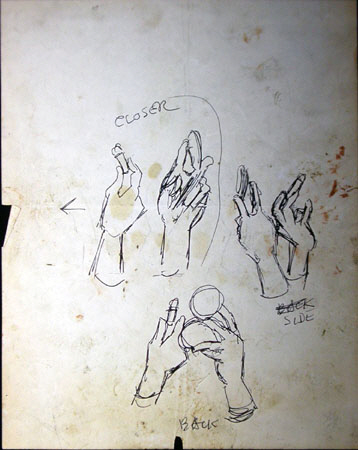 CLOSER
BACK
SIDE
BACK